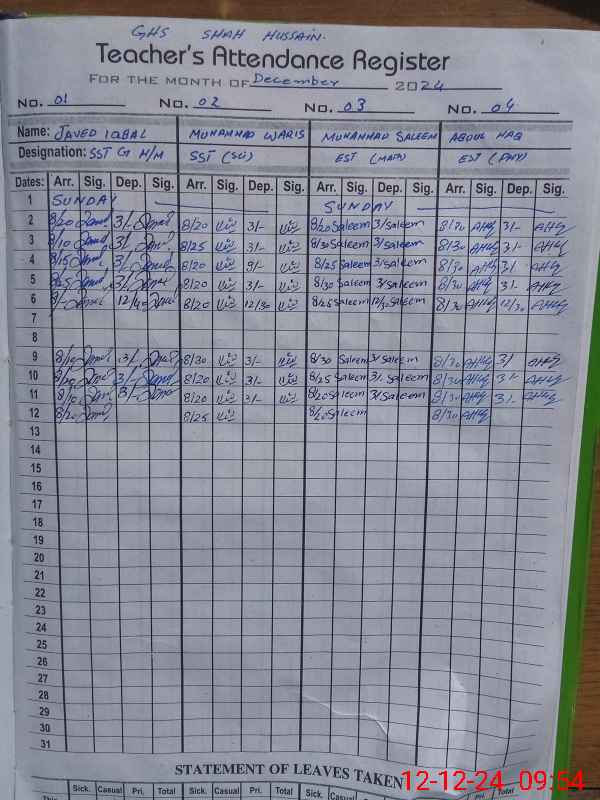 GHS SHAH HUSSAIN.
Teacher's Attendance Register
FOR THE MONTH OF December 2024
No. 01 No. 02 No. 03 No. 04
Name: JAVED IQBAL MUHAMMAD WARIS MUHAMMAD SALEEM ABDUL HAQ
Designation: SST G H/M SST (SCI) EST (MATH) EST (PHY)
Dates: Arr. Sig. Dep. Sig. Arr. Sig. Dep. Sig. Arr. Sig. Dep. Sig. Arr. Sig. Dep. Sig.
1 SUNDAY SUNDAY
2 8/20 3/- 8/20 3/- 8/20 Saleem 3/ Saleem 8/30 AHQ 3/- AHQ
3 8/10 3/- 8/25 3/- 8/30 Saleem 3/ Saleem 8/30 AHQ 3/- AHQ
4 8/15 3/- 8/20 8/25 Saleem 3/ Saleem 8/30 AHQ 3/- AHQ
5 8/25 3/- 8/20 3/- 8/30 Saleem 3/ Saleem 8/30 AHQ 3/- AHQ
6 8/- 8/20 12/30 8/25 Saleem 12/30 Saleem 8/30 AHQ 12/30 AHQ
7
8
9 8/10 3/- 8/30 3/- 8/30 Saleem 3/ Saleem 8/30 AHQ 3/ AHQ
10 3/- 8/20 3/- 8/25 Saleem 3/- Saleem 8/30 AHQ 3/- AHQ
11 8/10 3/- 8/20 3/- 8/20 Saleem 3/ Saleem 8/30 AHQ 3/- AHQ
12 8/20 8/25 8/20 Saleem 8/30 AHQ
13
14
15
16
17
18
19
20
21
22
23
24
25
26
27
28
29
30
31
STATEMENT OF LEAVES TAKEN
Sick. Casual Pri. Total Sick. Casual Pri. Total Sick. Casual Pri. Total Sick. Casual Pri. Total
12-12-24 09:54